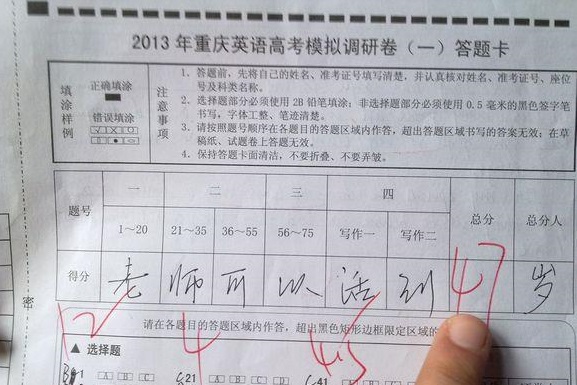 2013年重庆英语高考模拟调研卷（一）答题卡
填涂样例
正确填涂
错误填涂
注意事项
1. 答题前，先将自己的姓名、准考证号填写清楚，并认真核对姓名、准考证号、座位
号及科类名称。
2. 选择题部分必须使用2B铅笔填涂；非选择题部分必须使用0.5毫米的黑色签字笔
书写，字体工整、笔迹清楚。
3. 请按照题号顺序在各题目的答题区域内作答，超出答题区域书写的答案无效；在草
稿纸、试题卷上答题无效。
4. 保持答题卡面清洁，不要折叠、不要弄皱。
题号 一 二 三 四 总分 总分人
1～20 21～35 36～55 56～75 写作一 写作二
得分 老 师 可 以 活 到 47 岁
密
12 4 4.5
请在各题目的答题区域内作答，超出黑色矩形边框限定区域的
▲ 选择题
1 A B C D 21 A B C D 41